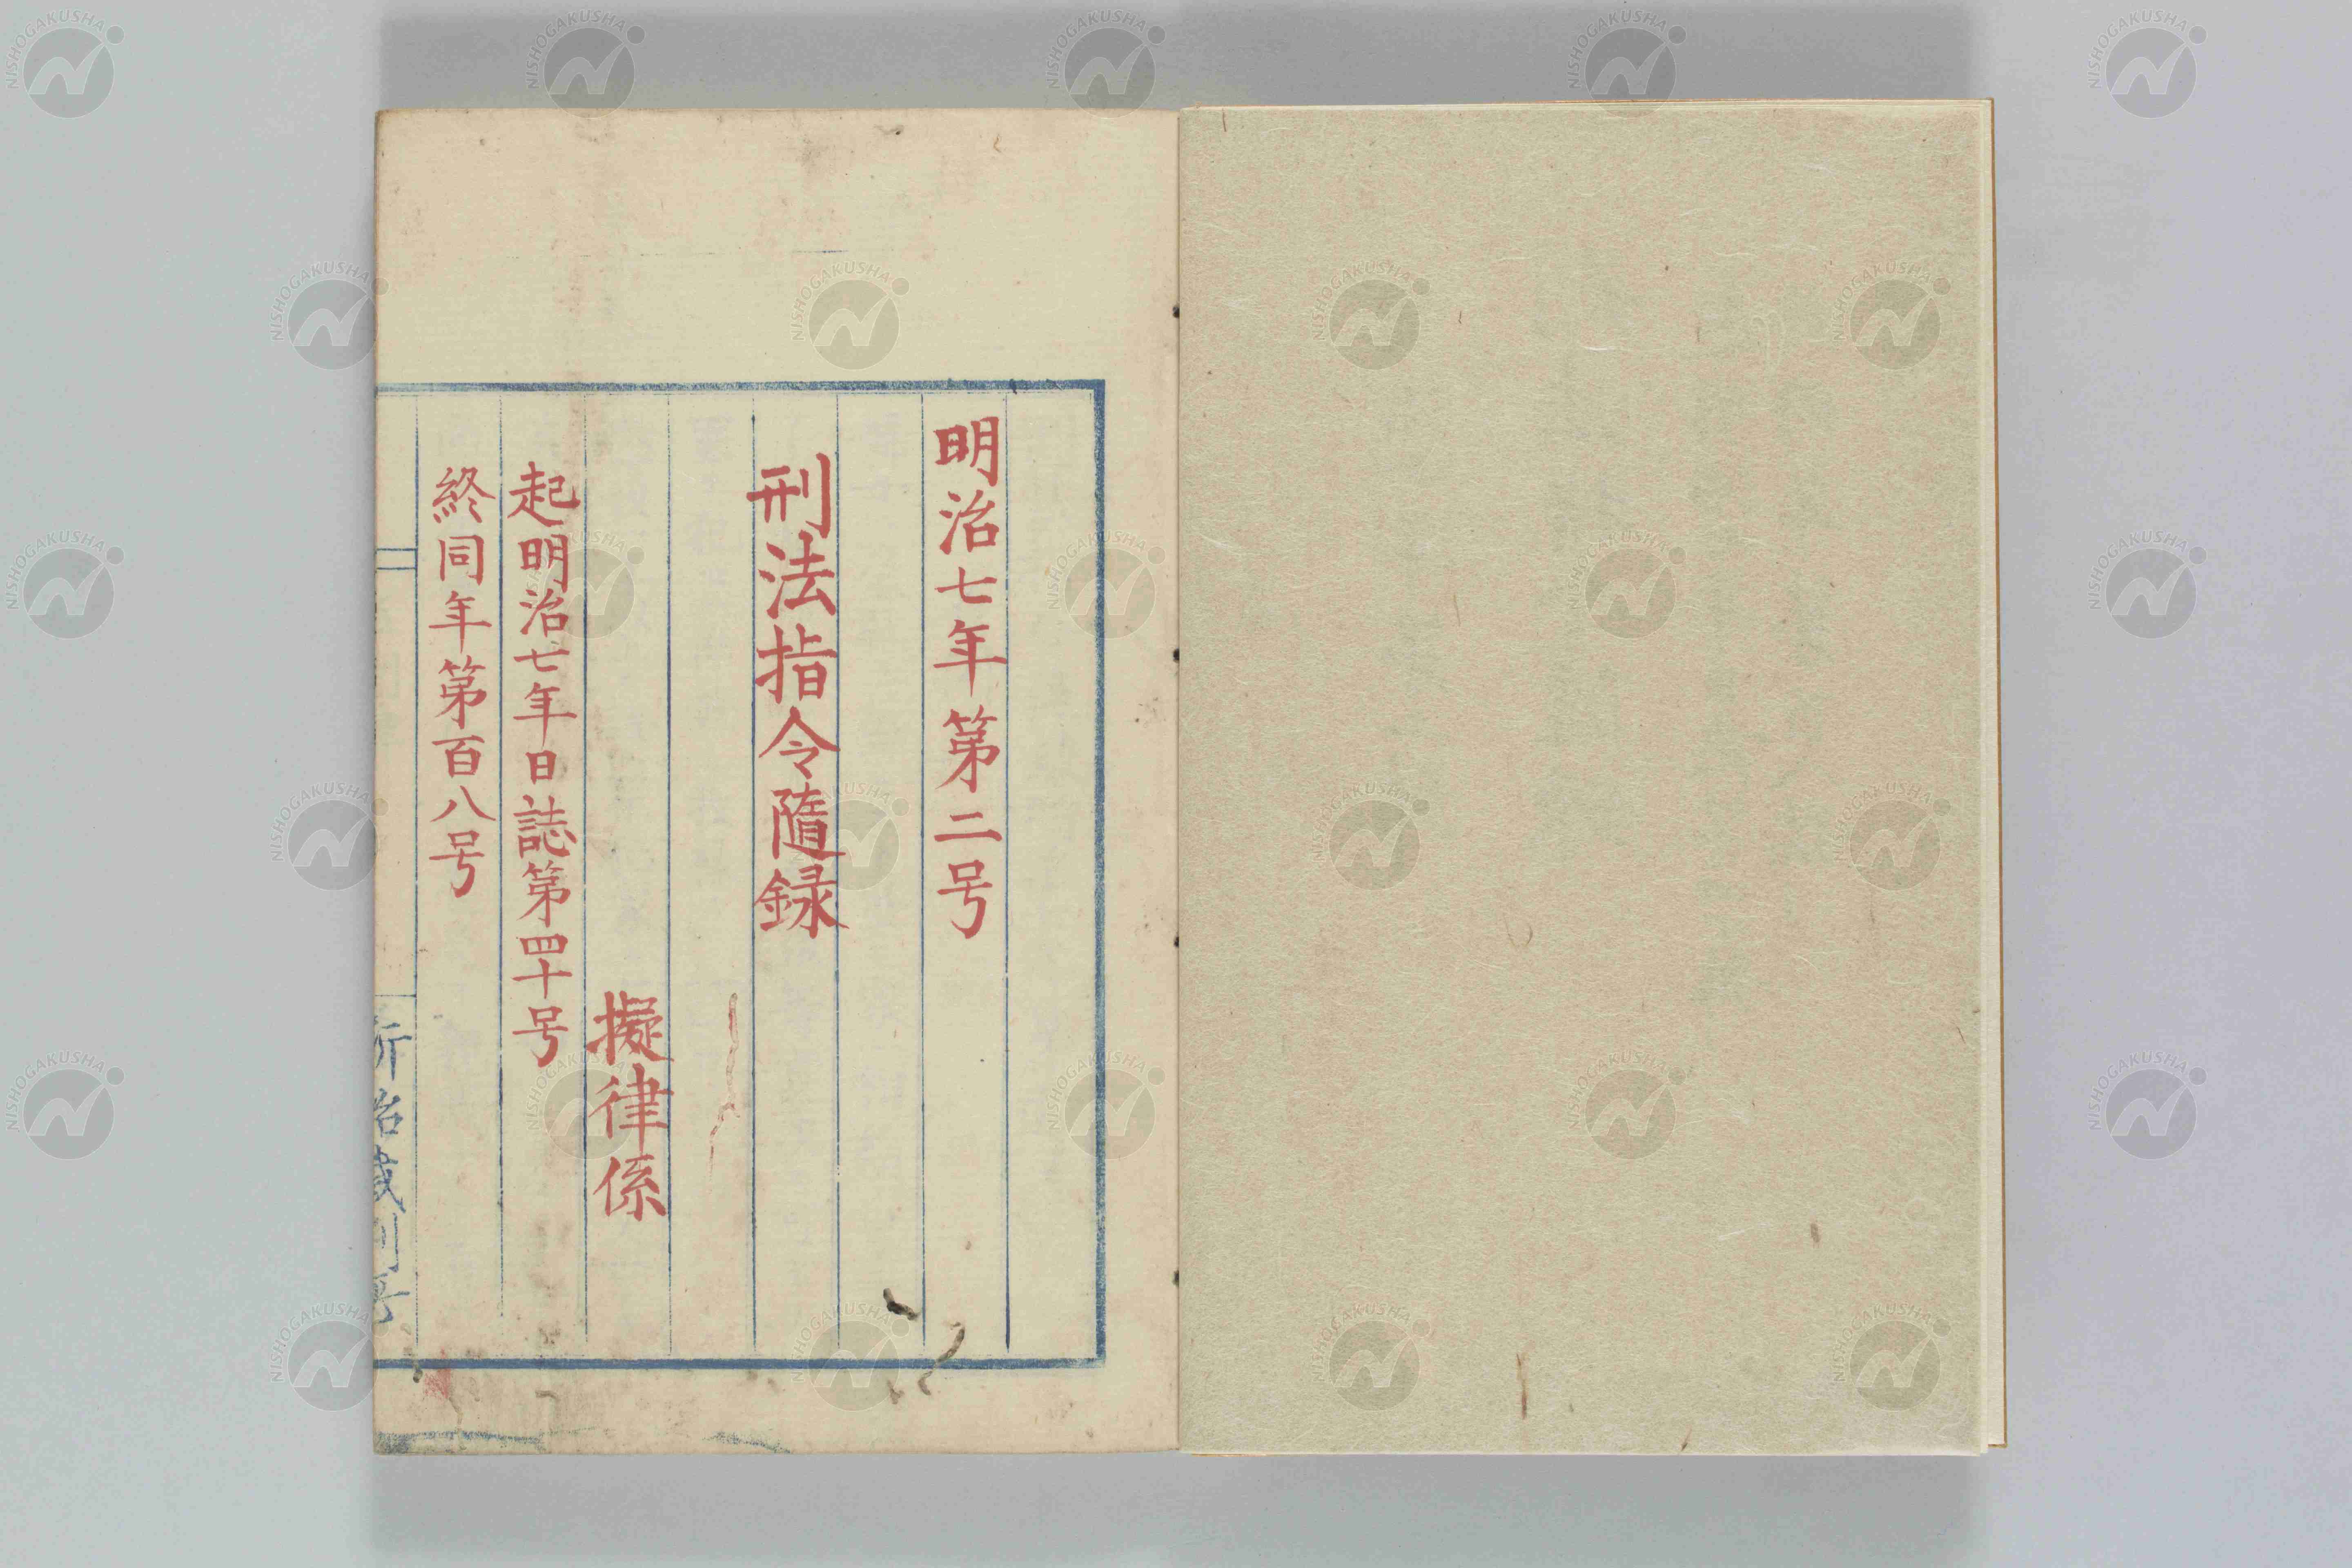 明治七年第二号
刑法指令隨録
擬律係
起明治七年日誌第四十号
終同年第百八号
NISHOGAKUSHA